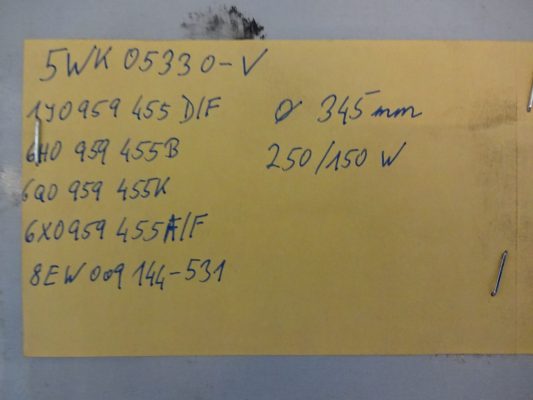 5WK 05330-V
1J0 959 455 D/F ø 345 mm
6H0 959 455B 250/150 W
6Q0 959 455K
6X0959 455A/F
8EW 009 144-531